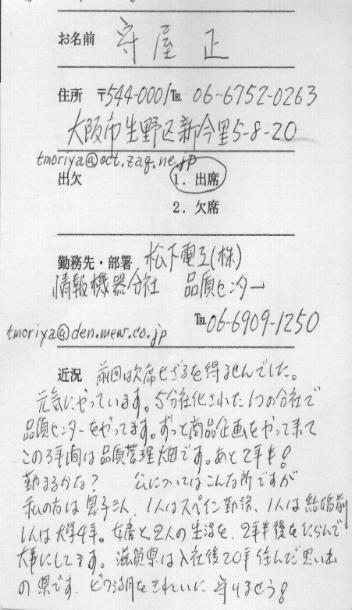 お名前 守屋 正
住所 〒544-0001 ℡ 06-6752-0263
大阪市生野区新今里5-8-20
tmoriya@oct.zaq.ne.jp
出欠 1. 出席
2. 欠席
勤務先・部署 松下電工(株)
情報機器分社 品質センター
tmoriya@den.mew.co.jp ℡06-6909-1250
近況 前回は欠席せざるを得ませんでした。
元気にやっています。5分社化された1つの分社で
品質センターをやってます。ずっと商品企画をやって来て
この3年間は品質管理大畑です。あと2年半!
勤まるかな? 公についてはこんな所ですが
私の方は息子3人、1人はスペイン勤務、1人は結婚前
1人は大学4年。女房と2人の生活を、2年半後をにらんで
大事にしてます。滋賀県は入社後20年住んだ思い出
の県です。ビワ湖をきれいに守りましょう!